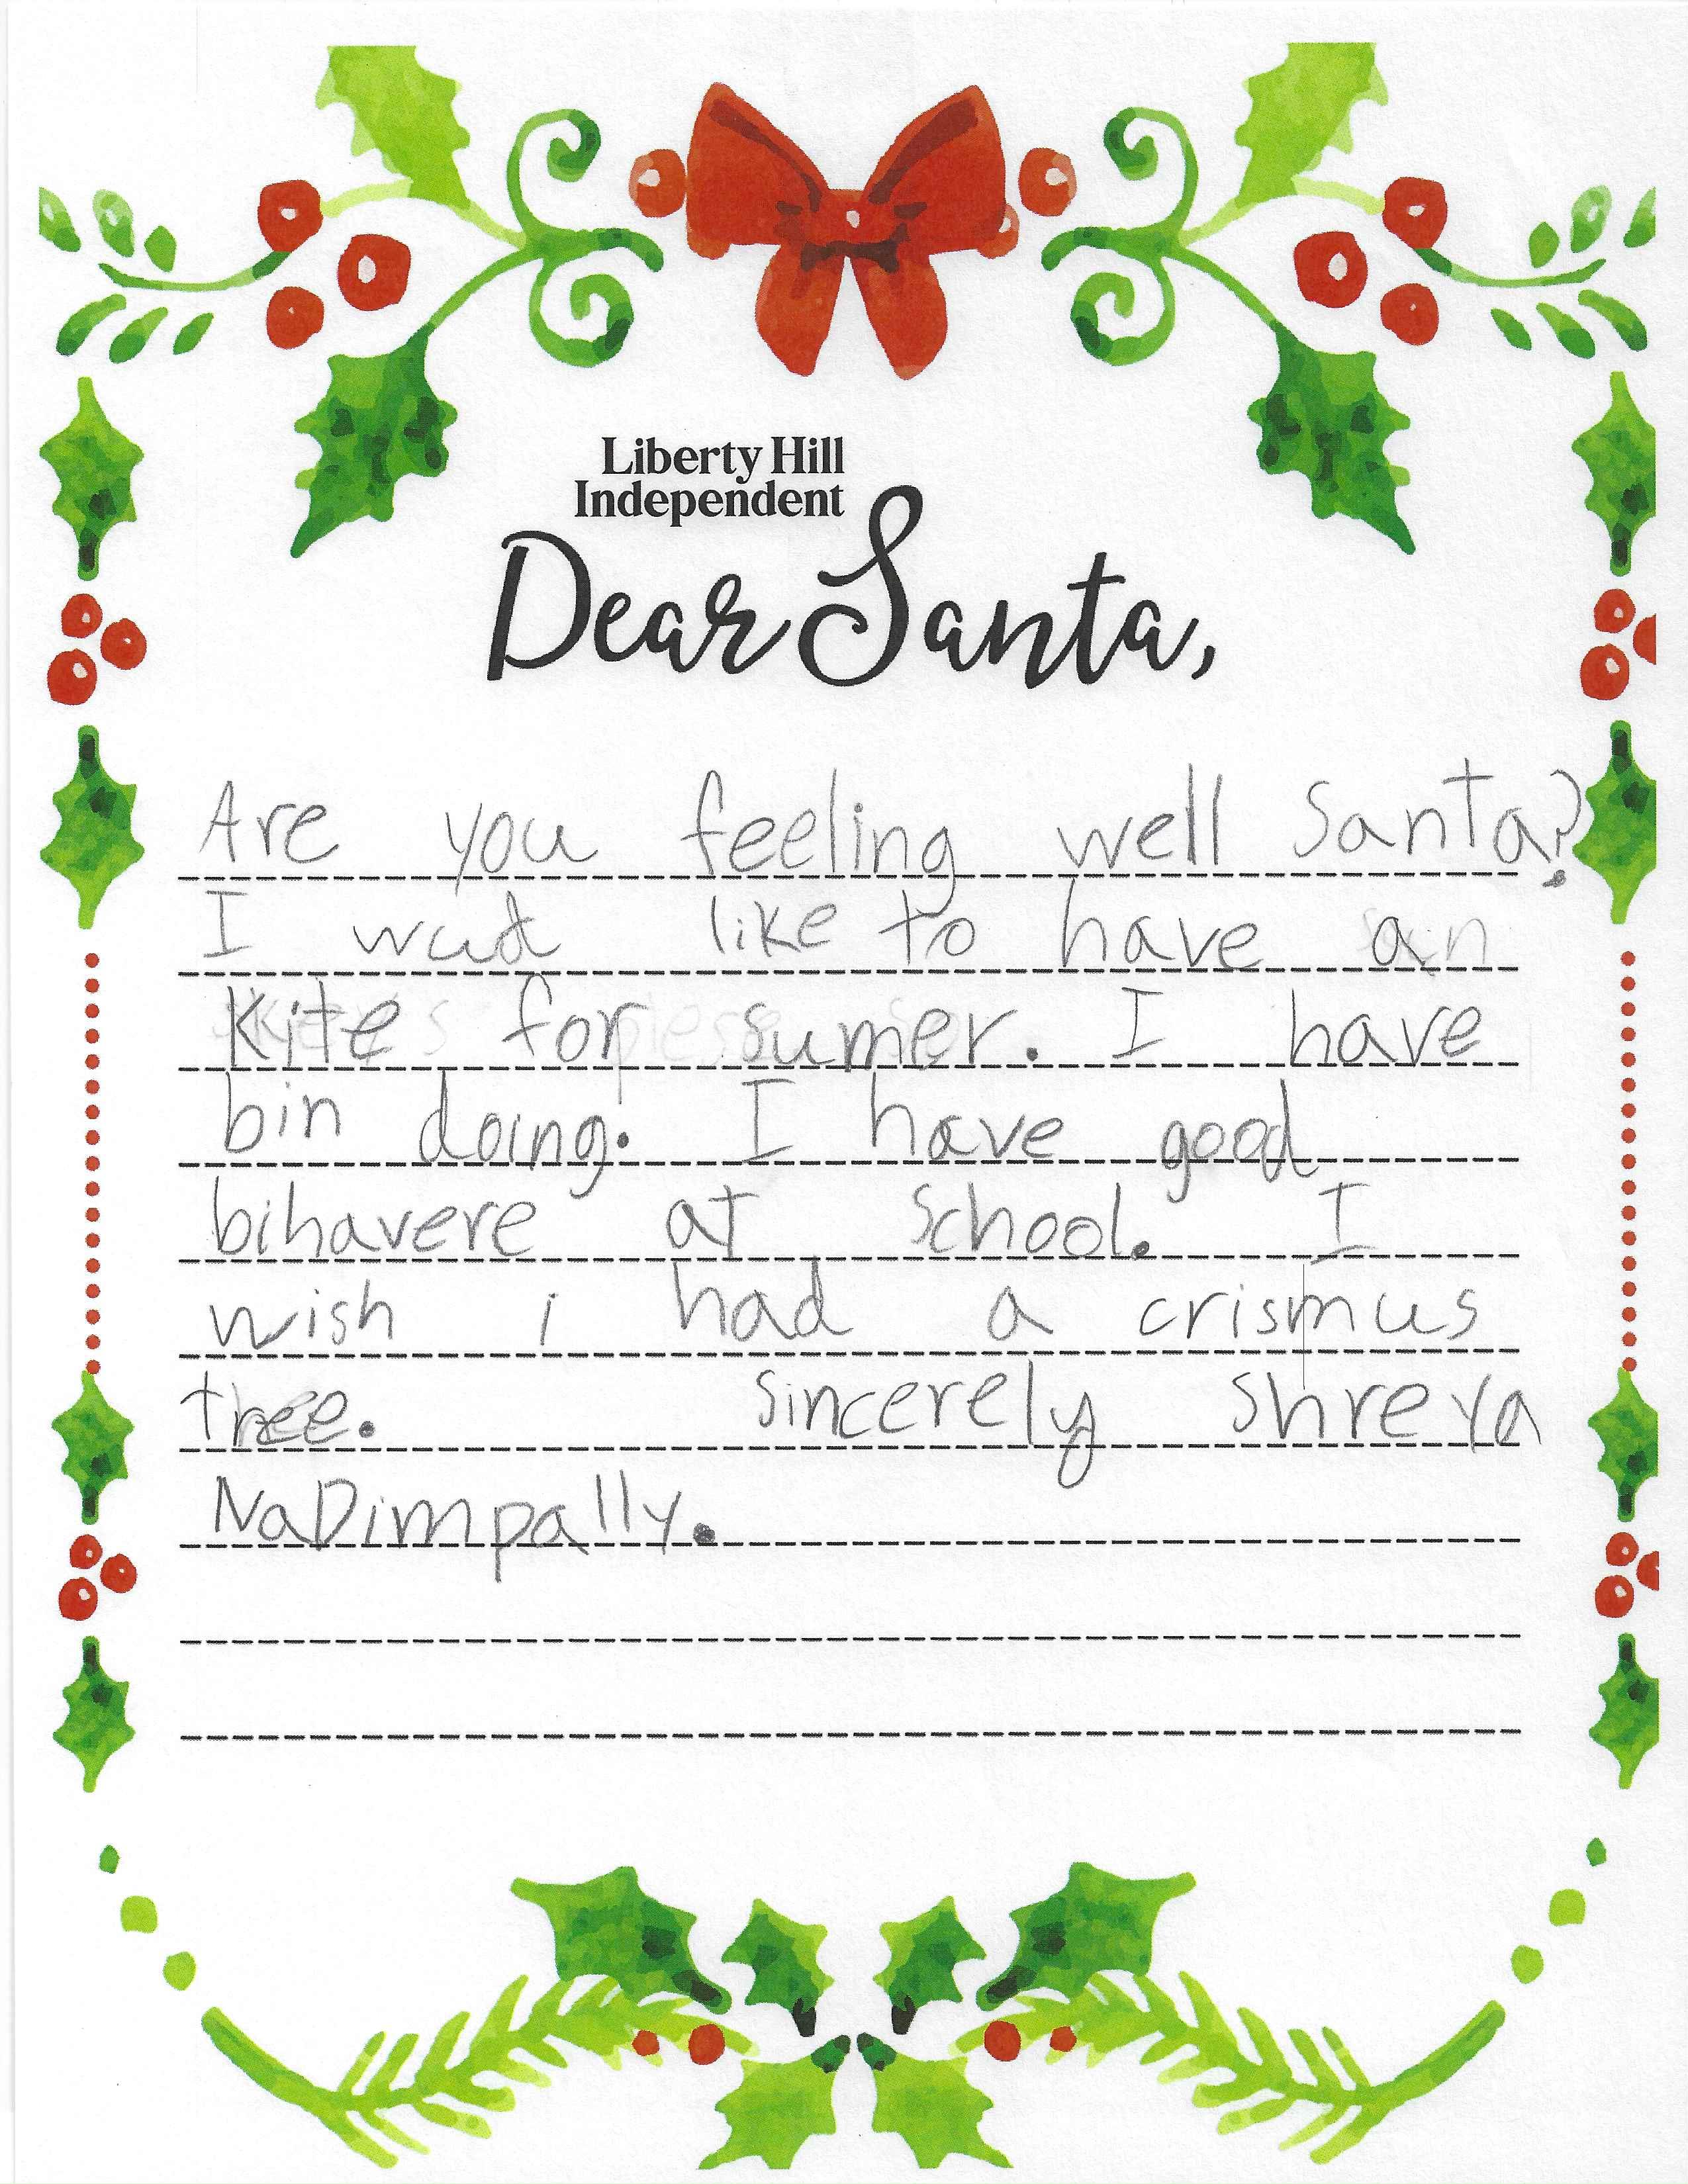 Liberty Hill
Independent
Dear Santa,
Are you feeling well Santa?
I wud like to have an
Kite for sumer. I have
bin doing. I have good
bihavere at School. I
wish i had a crismus
tree. Sincerely Shreya
NaDimpally.